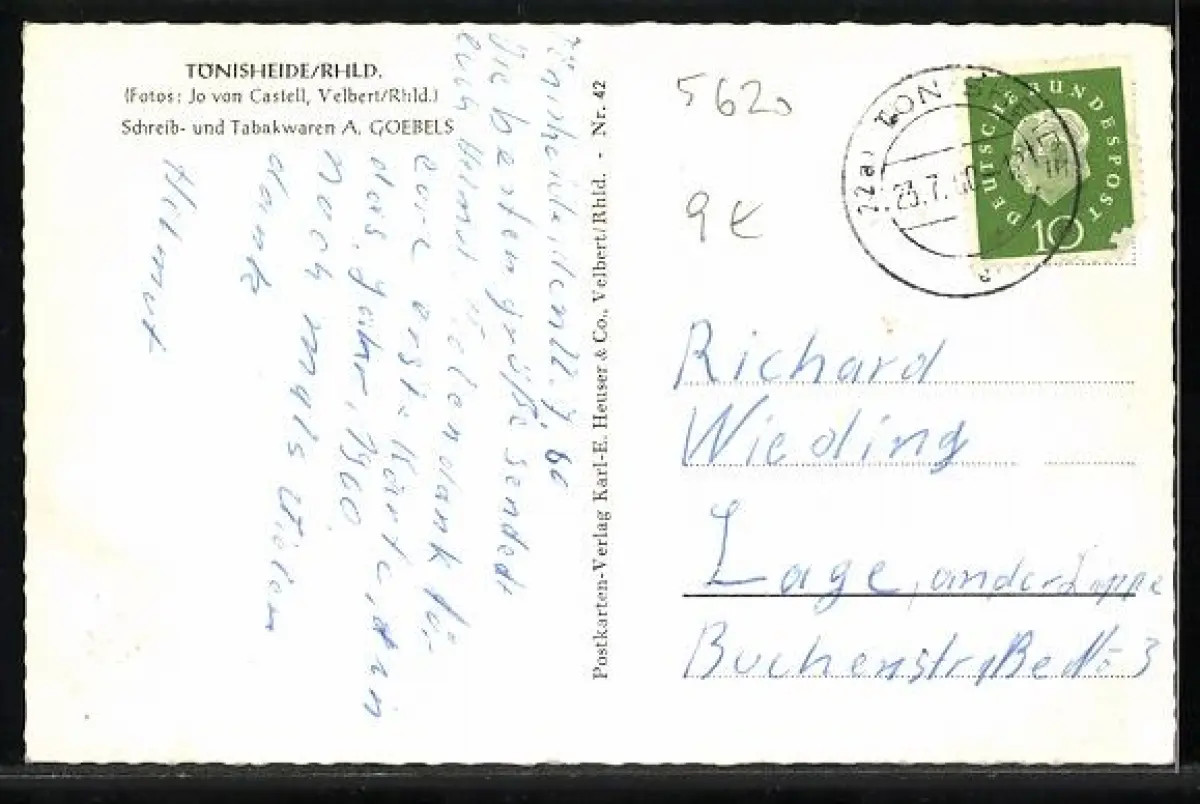 TÖNISHEIDE/RHLD.
(Fotos: Jo von Castell, Velbert/Rhld.)
Schreib- und Tabakwaren A. GOEBELS
Tönisheide, den 22. 7. 60
Die besten grüße sendet
euch Helmut. Vielen dank für
eure
das, jahr, 1960.
Noch mals Vielen
dank
Helmut
Postkarten-Verlag Karl-E. Heuser & Co., Velbert/Rhld. - Nr. 42
5620
9 €
(22a) TÖNISHEIDE
23.7.60
a
DEUTSCHE BUNDESPOST
10
Richard
Wieding
Lage, an der Lippe
Buchenstraße No 3